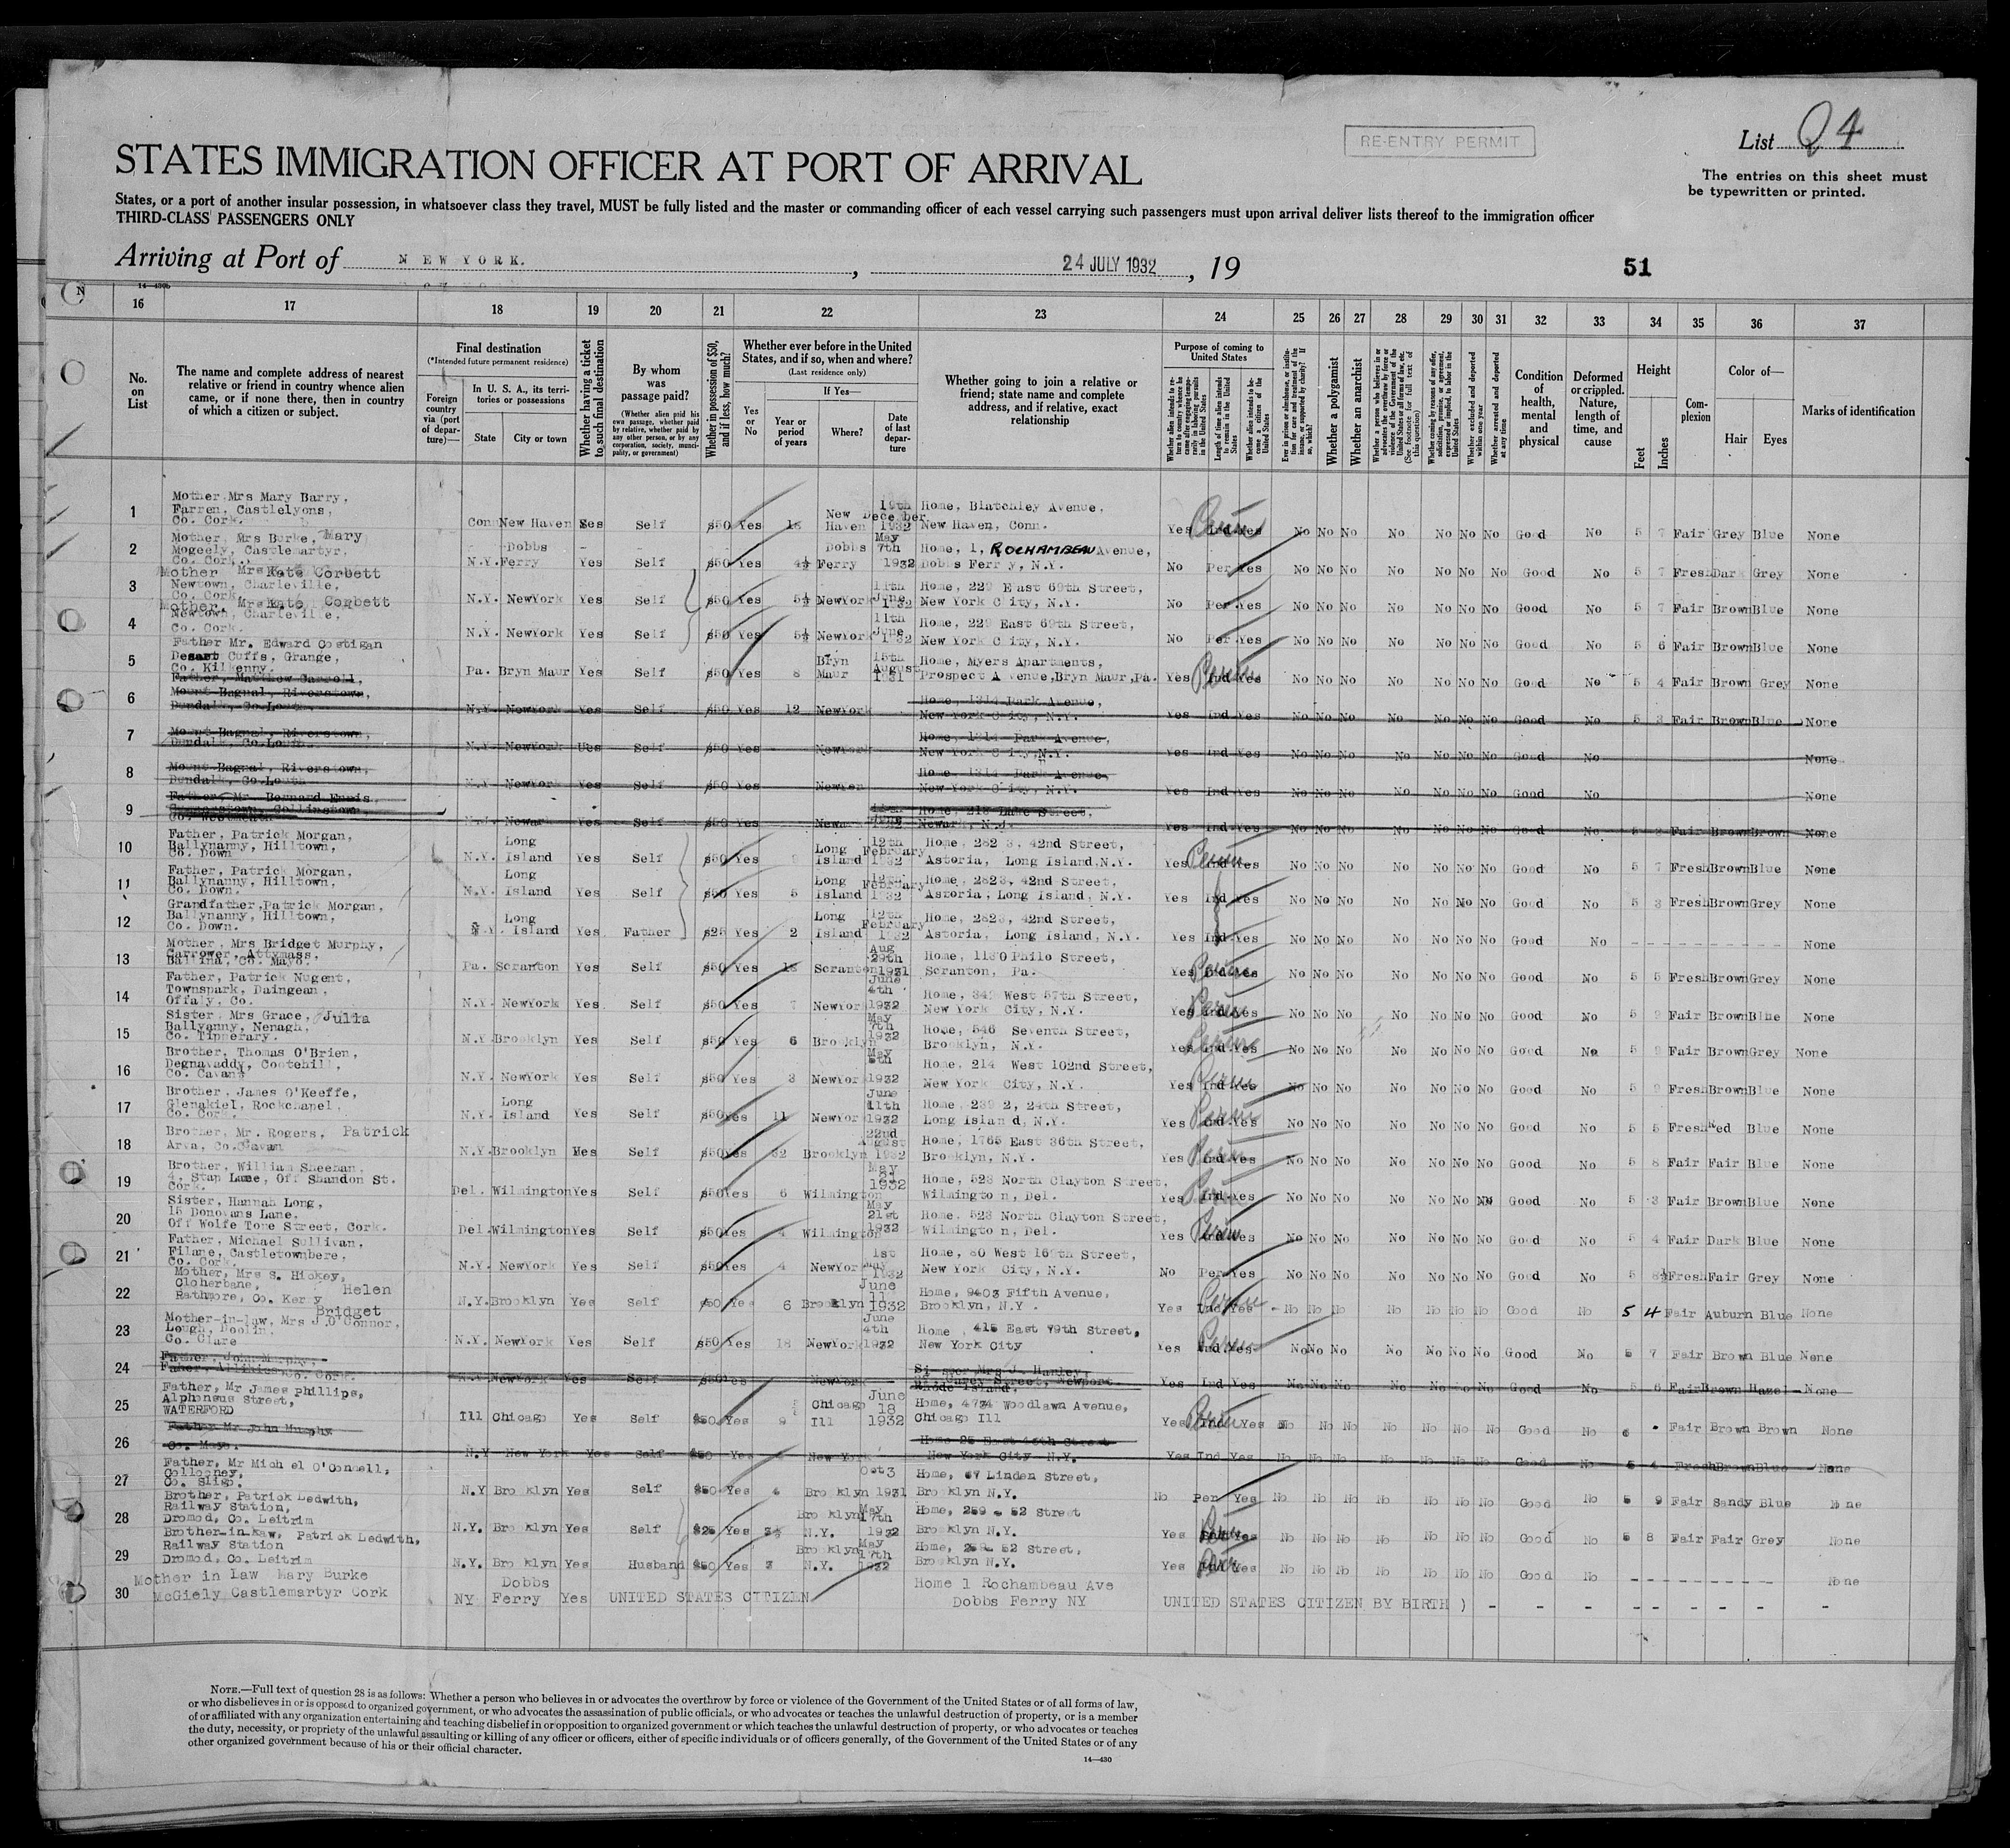 RE-ENTRY PERMIT
List 24
STATES IMMIGRATION OFFICER AT PORT OF ARRIVAL
The entries on this sheet must
be typewritten or printed.
States, or a port of another insular possession, in whatsoever class they travel, MUST be fully listed and the master or commanding officer of each vessel carrying such passengers must upon arrival deliver lists thereof to the immigration officer
THIRD-CLASS PASSENGERS ONLY
Arriving at Port of NEW YORK. , 24 JULY 1932 , 19
51
14-430b
16 17 18 19 20 21 22 23 24 25 26 27 28 29 30 31 32 33 34 35 36 37
No. on List
The name and complete address of nearest relative or friend in country whence alien came, or if none there, then in country of which a citizen or subject.
Final destination
(*Intended future permanent residence)
Foreign country via (port of departure)—
In U. S. A., its territories or possessions
State City or town
Whether having a ticket to such final destination
By whom was passage paid?
(Whether alien paid his own passage, whether paid by relative, whether paid by any other person, or by any corporation, society, municipality, or government)
Whether in possession of $50, and if less, how much?
Whether ever before in the United States, and if so, when and where?
(Last residence only)
Yes or No
If Yes—
Year or period of years
Where?
Date of last departure
Whether going to join a relative or friend; state name and complete address, and if relative, exact relationship
Purpose of coming to United States
Whether alien intends to return to country whence he came after engaging temporarily in laboring pursuits in the United States
Length of time alien intends to remain in the United States
Whether alien intends to become a citizen of the United States
Ever in prison or almshouse, or institution for care and treatment of the insane, or supported by charity? If so, which?
Whether a polygamist
Whether an anarchist
Whether a person who believes in or advocates the overthrow by force or violence of the Government of the United States or all forms of law, etc. (See footnote for full text of this question)
Whether coming by reason of any offer, solicitation, promise, or agreement, expressed or implied, to labor in the United States
Whether excluded and deported within one year
Whether arrested and deported at any time
Condition of health, mental and physical
Deformed or crippled. Nature, length of time, and cause
Height
Feet Inches
Complexion
Color of—
Hair Eyes
Marks of identification
1 Mother, Mrs Mary Barry,
Farren, Castlelyons,
Co. Cork. Con New Haven Yes Self $50 Yes 18 New Haven 19th December 1932 Home, Blatchley Avenue,
New Haven, Conn. Yes Ind Yes No No No No No No No Good No 5 7 Fair Grey Blue None
2 Mother, Mrs Burke, Mary
Mogeely, Castlemartyr,
Co. Cork. N.Y. Dobbs Ferry Yes Self $50 Yes 4½ Dobbs Ferry May 7th 1932 Home, 1, ROCHAMBEAU Avenue,
Dobbs Ferry, N.Y. No Per Yes No No No No No No No Good No 5 7 Fresh Dark Grey None
3 Mother Mrs Kate Corbett
Newtown, Charleville,
Co. Cork N.Y. NewYork Yes Self $50 Yes 5½ NewYork 11th June 1932 Home, 229 East 69th Street,
New York City, N.Y. No Per Yes No No No No No No No Good No 5 7 Fair Brown Blue None
4 Mother, Mrs Kate Corbett
Newtown, Charleville,
Co. Cork. N.Y. NewYork Yes Self $50 Yes 5½ NewYork 11th June 1932 Home, 229 East 69th Street,
New York City, N.Y. No Per Yes No No No No No No No Good No 5 6 Fair Brown Blue None
5 Father Mr. Edward Costigan
Desart Cuffs, Grange,
Co. Kilkenny. Pa. Bryn Maur Yes Self $50 Yes 8 Bryn Maur 15th August 1931 Home, Myers Apartments,
Prospect Avenue, Bryn Maur, Pa. Yes Ind Yes No No No No No No No Good No 5 4 Fair Brown Grey None
6 Father, Matthew Carroll,
Mount Bagnal, Riverstown,
Dundalk, Co. Louth. N.Y. NewYork Yes Self $50 Yes 12 NewYork Home, 1314 Park Avenue,
New York City, N.Y. Yes Ind Yes No No No No No No No Good No 5 3 Fair Brown Blue None
7 Mount Bagnal, Riverstown,
Dundalk, Co. Louth. N.Y. NewYork Self $50 Yes NewYork Home, 1314 Park Avenue,
New York City, N.Y. Yes Ind Yes No No No No No No No Good No None
8 Mount Bagnal, Riverstown,
Dundalk, Co. Louth N.Y. NewYork Yes Self $50 Yes Home 1314 Park Avenue,
New York City, N.Y. Yes Ind Yes No No No No No No No Good No None
9 Father, Mr. Bernard Ennis,
Collinstown,
Co. Westmeath N.J. Newark Yes Self $50 Yes Newark June 1932 Home, 218 Lake Street,
Newark, N.J. Yes Ind Yes No No No No No No No Good No Fair Brown Brown None
10 Father, Patrick Morgan,
Ballynanny, Hilltown,
Co. Down N.Y. Long Island Yes Self $50 Yes Long Island 12th February 1932 Home, 2823, 42nd Street,
Astoria, Long Island, N.Y. Yes Ind Yes No No No No No No No Good No 5 7 Fresh Brown Blue None
11 Father, Patrick Morgan,
Ballynanny, Hilltown,
Co. Down. N.Y. Long Island Yes Self $50 Yes 5 Long Island 12th February 1932 Home, 2823, 42nd Street,
Astoria, Long Island, N.Y. Yes Ind Yes No No No No No No No Good No 5 3 Fresh Brown Grey None
12 Grandfather, Patrick Morgan,
Ballynanny, Hilltown,
Co. Down. N.Y. Long Island Yes Father $25 Yes 2 Long Island 12th February 1932 Home, 2823, 42nd Street,
Astoria, Long Island, N.Y. Yes Ind Yes No No No No No No No Good No None
13 Mother, Mrs Bridget Murphy,
Carrower, Attymass,
Ballina, Co. Mayo. Pa. Scranton Yes Self $50 Yes 18 Scranton Aug 29th 1931 Home, 1130 Philo Street,
Scranton, Pa. Yes Ind Yes No No No No No No No Good No 5 5 Fresh Brown Grey None
14 Father, Patrick Nugent,
Townspark, Daingean,
Offaly, Co. N.Y. NewYork Yes Self $50 Yes 7 NewYork June 4th 1932 Home, 342 West 57th Street,
New York City, N.Y. Yes Ind Yes No No No No No No No Good No 5 9 Fair Brown Blue None
15 Sister, Mrs Grace, Julia
Ballyanny, Nenagh,
Co. Tipperary. N.Y. Brooklyn Yes Self $50 Yes 6 Brooklyn May 7th 1932 Home, 546 Seventh Street,
Brooklyn, N.Y. Yes Ind Yes No No No No No No No Good No 5 9 Fair Brown Grey None
16 Brother, Thomas O'Brien,
Degnavaddy, Cootehill,
Co. Cavan N.Y. NewYork Yes Self $50 Yes 3 NewYork May 1932 Home, 214 West 102nd Street,
New York City, N.Y. Yes Ind Yes No No No No No No No Good No 5 9 Fresh Brown Blue None
17 Brother, James O'Keeffe,
Glenakiel, Rockchapel,
Co. Cork. N.Y. Long Island Yes Self $50 Yes 11 NewYork June 11th 1932 Home, 2392, 24th Street,
Long Island, N.Y. Yes Ind Yes No No No No No No No Good No 5 5 Fresh Red Blue None
18 Brother, Mr. Rogers, Patrick
Arva, Co. Cavan N.Y. Brooklyn Yes Self $50 Yes 32 Brooklyn 22nd August 1932 Home, 1765 East 36th Street,
Brooklyn, N.Y. Yes Ind Yes No No No No No No No Good No 5 8 Fair Fair Blue None
19 Brother, William Sheehan,
4, Stap Lane, Off Shandon St.
Cork. Del. Wilmington Yes Self $50 Yes 6 Wilmington May 21 1932 Home, 523 North Clayton Street,
Wilmington, Del. Yes Ind Yes No No No No No No No Good No 5 3 Fair Brown Blue None
20 Sister, Hannah Long,
15 Donovans Lane,
Off Wolfe Tone Street, Cork. Del. Wilmington Yes Self $50 Yes 4 Wilmington May 21st 1932 Home, 523 North Clayton Street,
Wilmington, Del. Yes Ind Yes No No No No No No No Good No 5 4 Fair Dark Blue None
21 Father, Michael Sullivan,
Filane, Castletownbere,
Co. Cork. N.Y. NewYork Yes Self $50 Yes 4 NewYork 1st May 1932 Home, 80 West 169th Street,
New York City, N.Y. No Per Yes No No No No No No No Good No 5 8½ Fresh Fair Grey None
22 Mother, Mrs S. Hickey, Helen
Cloherbane,
Rathmore, Co. Kerry N.Y. Brooklyn Yes Self $50 Yes 6 Brooklyn June 11 1932 Home, 9403 Fifth Avenue,
Brooklyn, N.Y. Yes Ind Yes No No No No No No No Good No 5 4 Fair Auburn Blue None
23 Mother-in-law, Mrs J O'Connor, Bridget
Lough, Doolin,
Co. Clare N.Y. NewYork Yes Self $50 Yes 18 NewYork June 4th 1932 Home, 415 East 79th Street,
New York City Yes Ind. Yes. No No No No No No No Good No 5 7 Fair Brown Blue None
24 Father, John Murphy,
Allihies, Co. Cork. N.Y. NewYork Yes Self $50 Yes NewYork Sister Mrs J. Hanley,
Carey Street, Newport.
Rhode Island. Yes Ind Yes No No No No No No No Good No 5 6 Fair Brown Hazel None
25 Father, Mr James phillips,
Alphonsus Street,
WATERFORD Ill Chicago Yes Self $50 Yes 9 Chicago Ill June 18 1932 Home, 4734 Woodlawn Avenue,
Chicago Ill Yes Ind Yes No No No No No No No Good No 6 Fair Brown Brown None
26 Father Mr John Murphy
Co. Mayo. N.Y New York Yes Self $50 Yes New York Home 25 East Street
New York City N.Y. Yes Ind Yes No No No No No No No Good No 5 4 Fresh Brown Blue None
27 Father, Mr Michael O'Connell,
Collooney,
Co. Sligo. N.Y Brooklyn Yes Self $50 Yes 4 Brooklyn Oct 3 1931 Home, 67 Linden Street,
Brooklyn N.Y. No Per Yes No No No No No No No Good No 5 9 Fair Sandy Blue None
28 Brother, Patrick Ledwith,
Railway Station,
Dromod, Co. Leitrim N.Y. Brooklyn Yes Self $25 Yes 3½ Brooklyn N.Y. May 17th 1932 Home, 259 - 52 Street
Brooklyn N.Y. Yes Ind Yes No No No No No No No Good No 5 8 Fair Fair Grey None
29 Brother-in-Law, Patrick Ledwith,
Railway Station
Dromod, Co. Leitrim N.Y. Brooklyn Yes Husband $50 Yes 3 Brooklyn N.Y. May 17th 1932 Home, 259- 52 Street,
Brooklyn N.Y. Yes Ind Yes No No No No No No No Good No None
30 Mother in Law Mary Burke
McGiely Castlemartyr Cork NY Dobbs Ferry Yes UNITED STATES CITIZEN Home 1 Rochambeau Ave
Dobbs Ferry NY UNITED STATES CITIZEN BY BIRTH )
NOTE.—Full text of question 28 is as follows: Whether a person who believes in or advocates the overthrow by force or violence of the Government of the United States or of all forms of law,
or who disbelieves in or is opposed to organized government, or who advocates the assassination of public officials, or who advocates or teaches the unlawful destruction of property, or is a member
of or affiliated with any organization entertaining and teaching disbelief in or opposition to organized government or which teaches the unlawful destruction of property, or who advocates or teaches
the duty, necessity, or propriety of the unlawful assaulting or killing of any officer or officers, either of specific individuals or of officers generally, of the Government of the United States or of any
other organized government because of his or their official character.
14—430